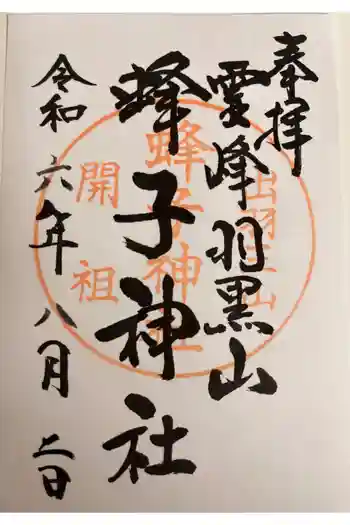 奉拝
霊峰羽黒山
蜂子神社
令和六年八月二日
出羽三山
蜂子神社
開祖